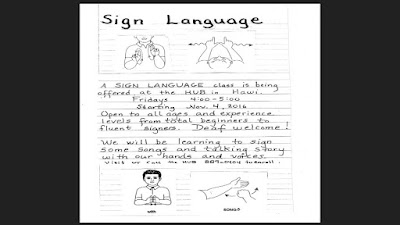 Sign Language
A SIGN LANGUAGE class is being
offered at the HUB in Hawi.
Fridays 4:00-5:00
Starting Nov. 4, 2016
Open to all ages and experience
levels from total beginners to
fluent signers. Deaf welcome!
We will be learning to sign
some songs and talking story
with our hands and voices.
Visit or Call the HUB to enroll.
with SONGS